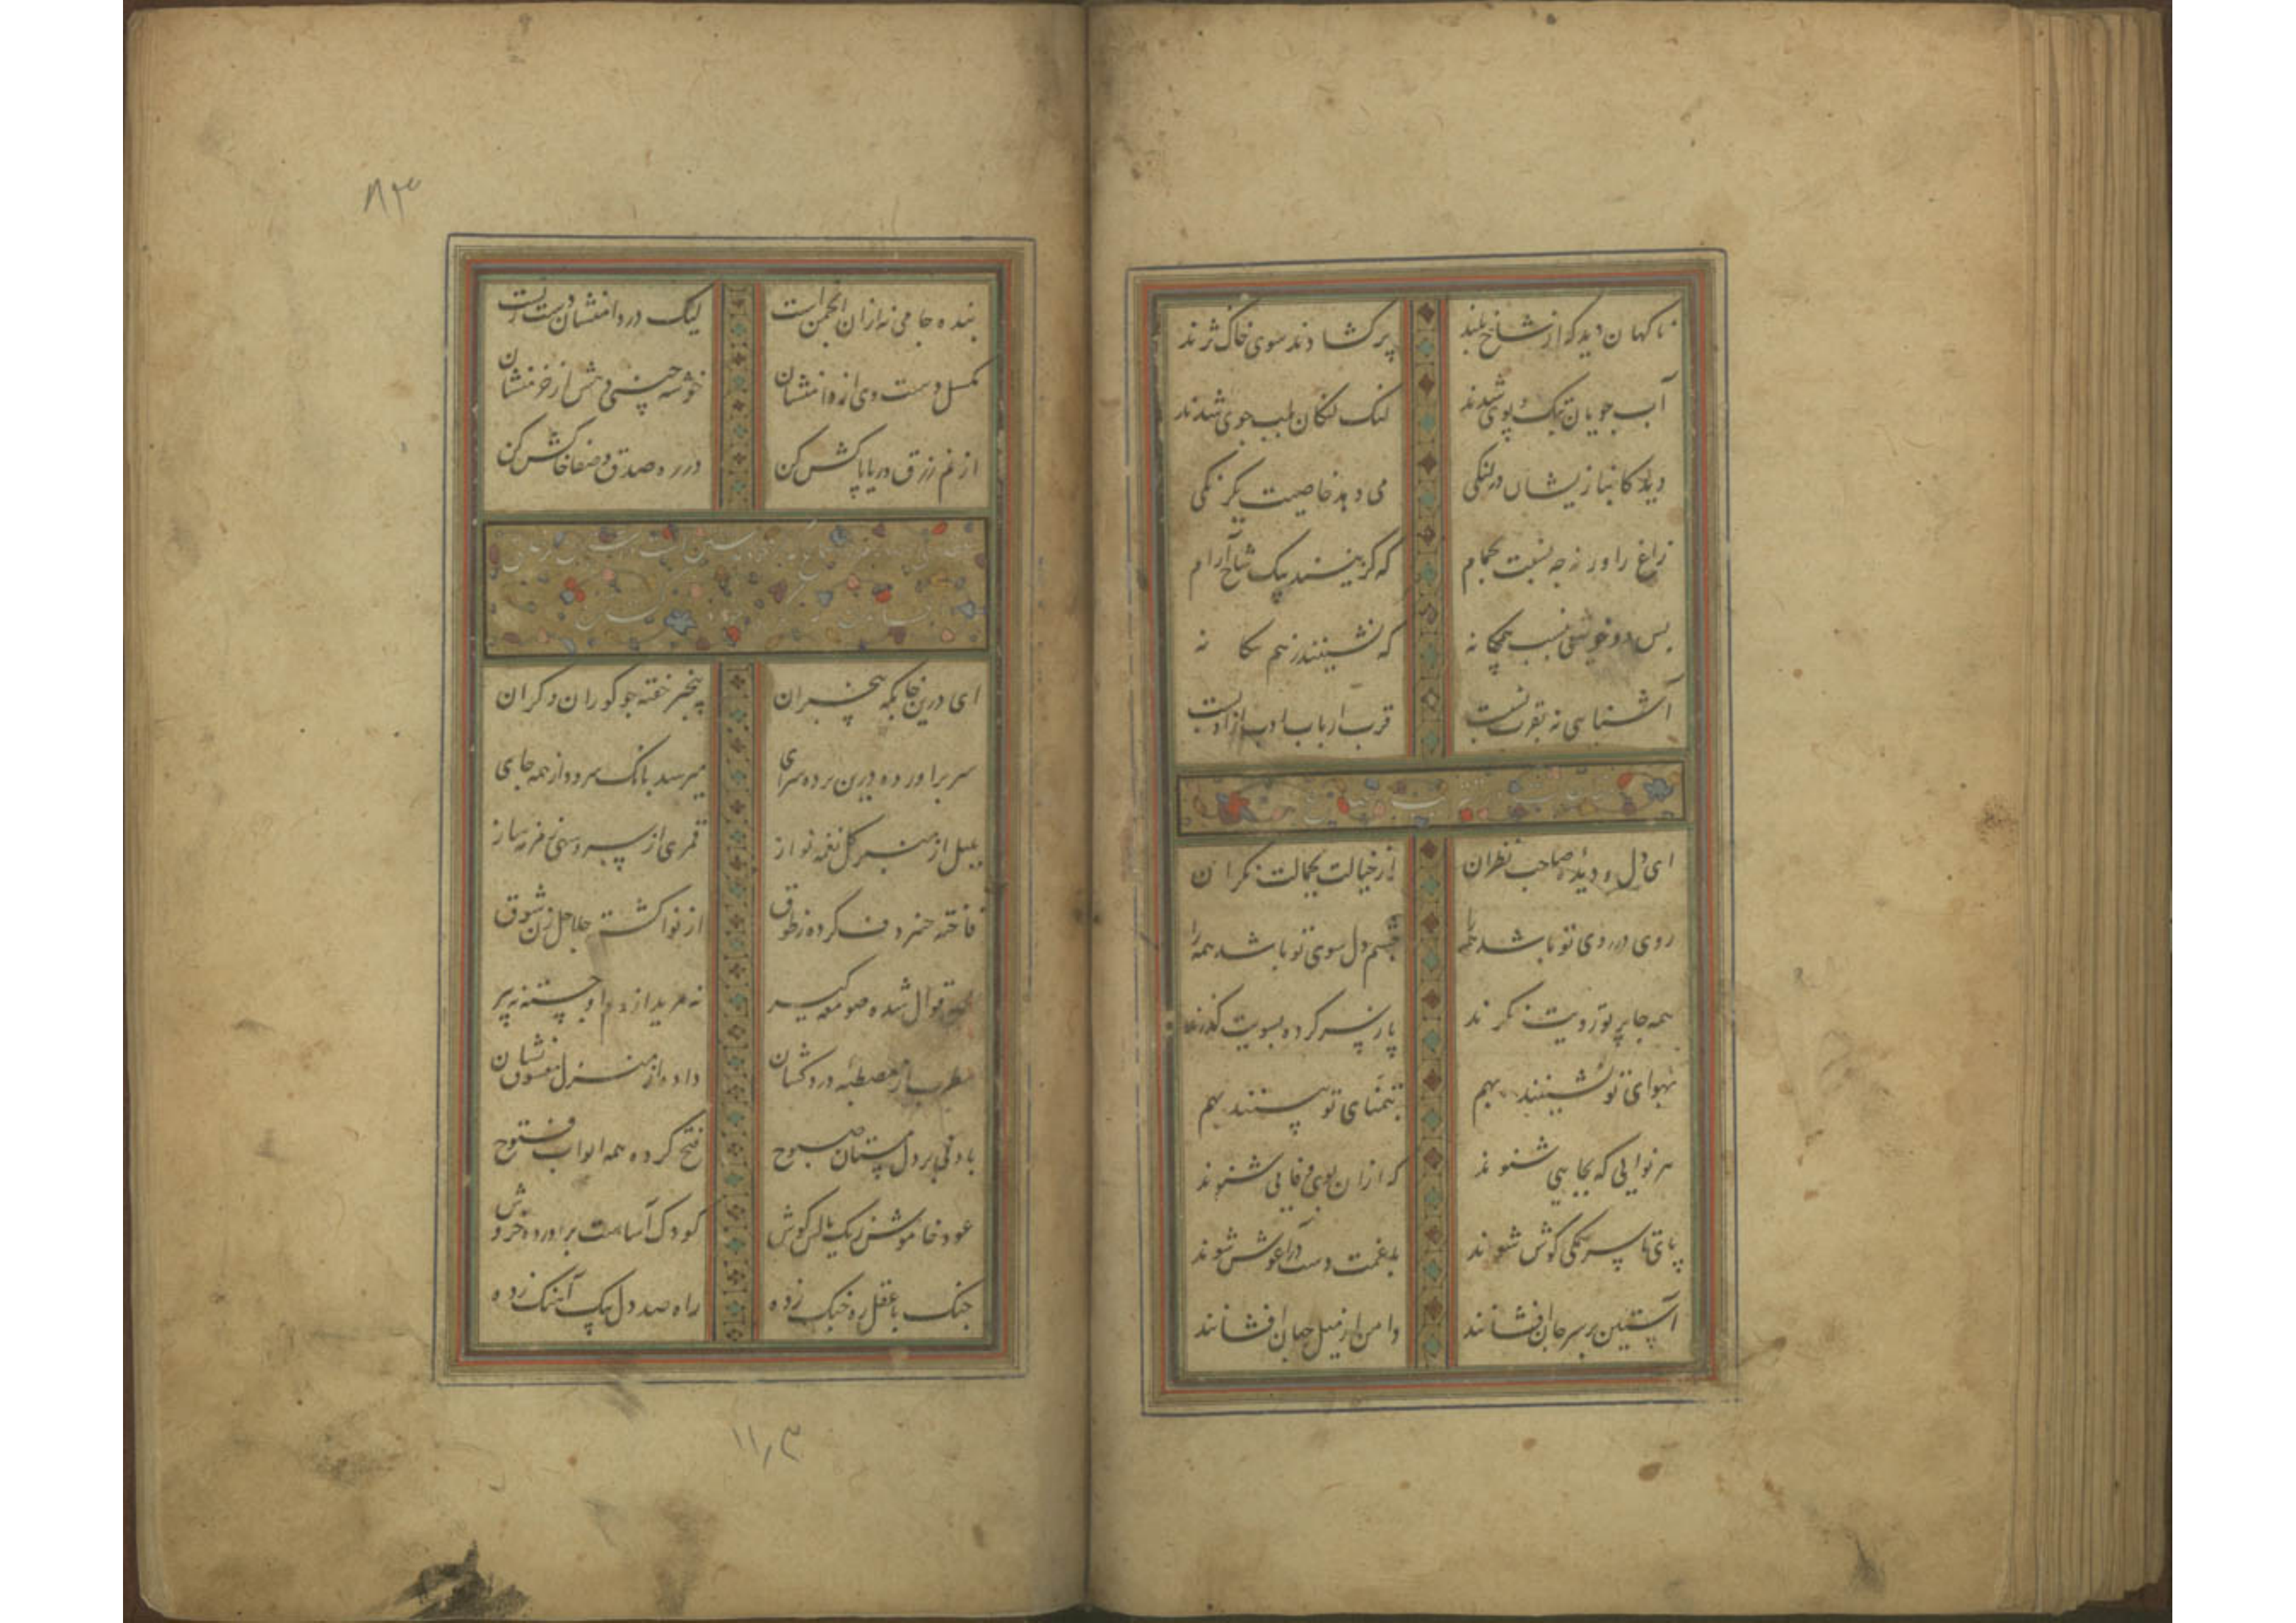 ناکهان دید که از شاخ بلند
پر کشادند سوی خاک نژند
آب جویان بتک و پوی شدند
لنک لنکان بلب جوی شدند
دید کانباز یشان در لنکی
می دهد خاصیت یکرنکی
زاغ را ورنه چه نسبت بحمام
که کزینند بیک شاخ آرام
بس دو خویش نسب همکانه
که نشینند ز هم بیکانه
آشنایی نه بقرب نسبت
قرب ارباب ادب از ادبست
ای دل و دیده صاحب نظران
از خیالت بجمالت نکران
روی در روی تو باشد همه را
چشم دل سوی تو باشد همه را
همه جا پرتو رویت نکرند
پا ز سر کرده بسویت کذرند
بهوای تو نشینند بهم
بتمنای تو پیستند بهم
هر نوایی که بجایی شنوند
که ازان بوی وفایی شنوند
پای تا سر همکی کوش شوند
با غمت دست در آغوش شوند
آستین بر سر جان افشانند
دامن از میل جهان افشانند
۸۳
بنده جامی نه ازان انجمن است
لیک در دامنشان دست زنست
مکسل دست وی از دامنشان
خوشه چینی دهش از خرمنشان
از غم رزق دریا پاکش کن
در ره صدق و صفا خاکش کن
ای درین خوابکه بیخبران
بیخبر خفته جو کوران و کران
سر براورده درین پرده سرای
میرسد بانک سرود از همه جای
بلبل از منبر کل نغمه نواز
قمری از سرو سهی زمزمه ساز
فاخته چنبر دف کرده ز طوق
از نوا کشته جلاجل زن شوق
قوال شده صومعه کیر
نه مرید از دم او جسته نه پیر
مطرب از مصطبه درد کشان
داده از منزل مقصود نشان
باد نی بر دل مستان صبوح
فتح کرده همه ابواب فتوح
عود خاموش ز یک مالش کوش
کودک آسا ست براورده خروش
جنک با عقل ره جنک زده
راه صد دل بیک آهنک زده
۱۱٫۳